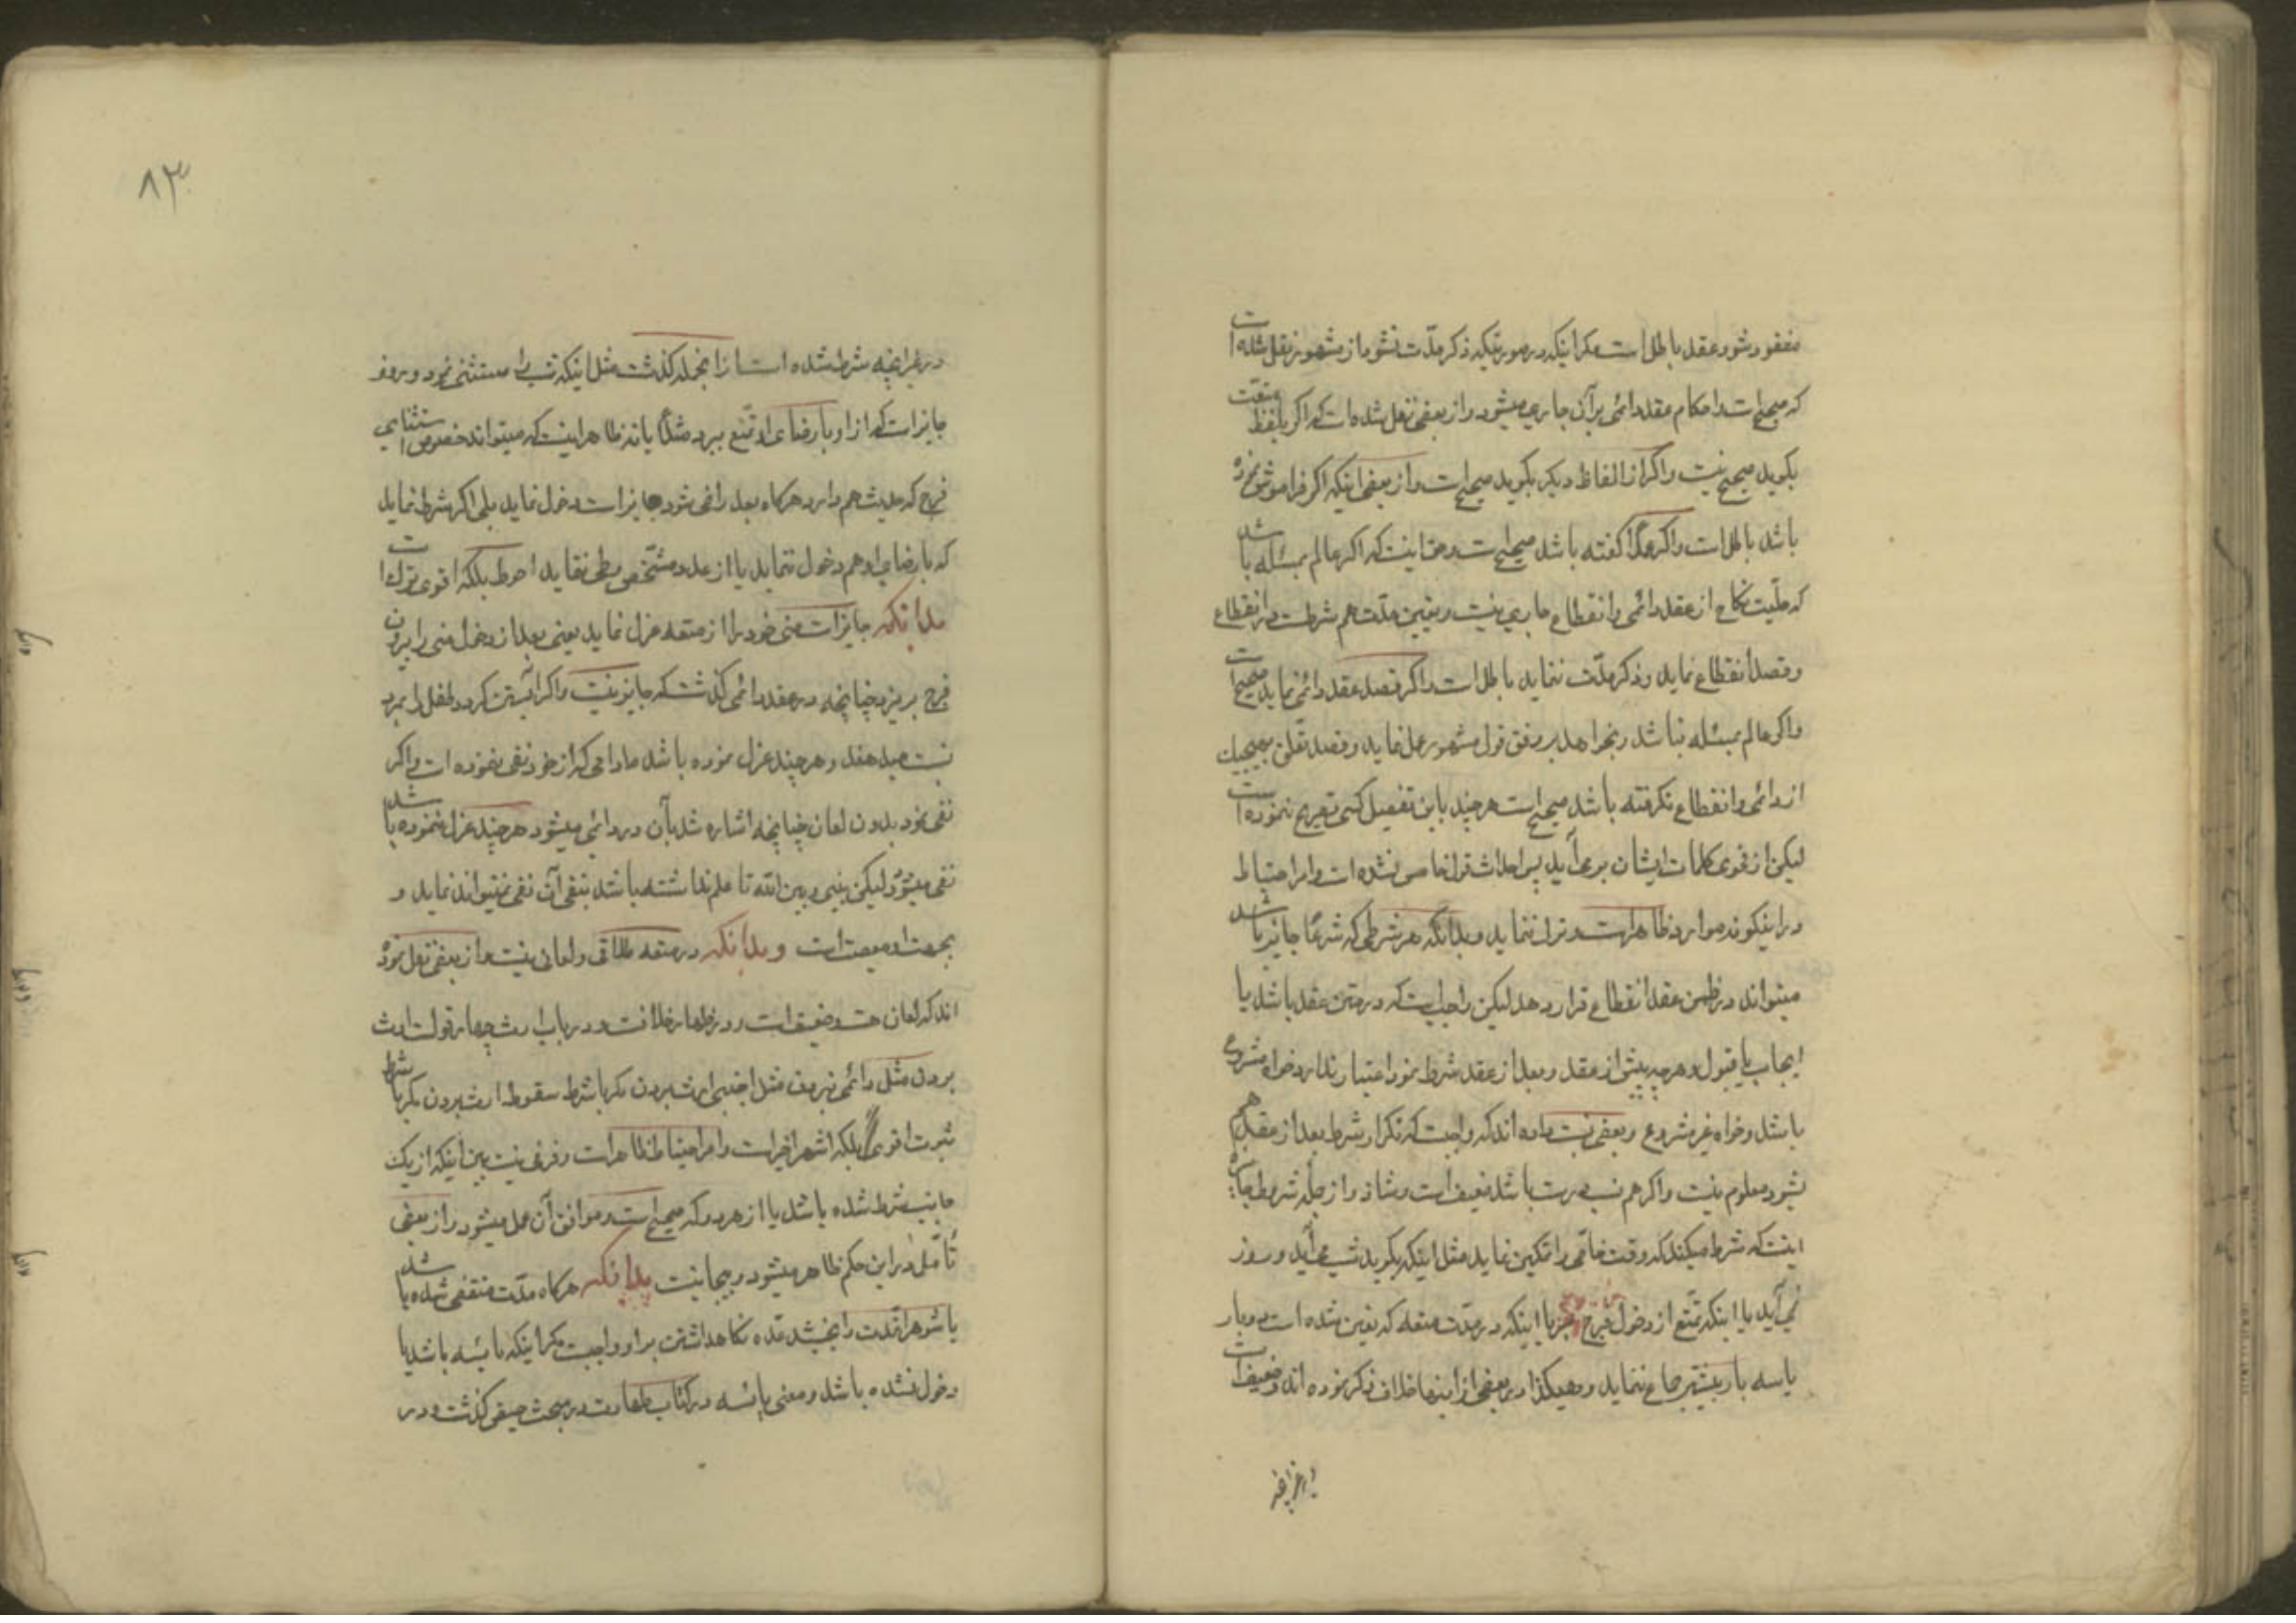 مفقود شود عقد باطل است مگر اینکه در صورتیکه ذکر مدّت نشود از مشهور نقل شده است
که صحیح است و احکام عقد دائمی بر آن جاری میشود و از بعضی نقل شده است که اگر بلفظ متعت
بگوید صحیح نیست و اگر از الفاظ دیگر بگوید صحیح است و از بعضی اینکه اگر فراموش نموده
باشد باطل است و اگر عمدًا گفته باشد صحیح است و حق اینست که اگر عالم بمسئله باشد
که حلّیت نکاح از عقد دائمی و انقطاع جاری نیست و تعیین مدّت هم شرط است در انقطاع
و قصد انقطاع نماید و ذکر مدّت ننماید باطل است و اگر قصد عقد دائمی نماید صحیح است
و اگر عالم بمسئله نباشد و بخواهد بر وفق قول مشهور عمل نماید و قصد تعلق بهیچیک
از دائمی و انقطاع نگرفته باشد صحیح است هر چند باین تفصیل کسی تصریح ننموده است
لیکن از فحوی کلمات ایشان بر می آید پس احداث قول خاص نشده است و امر احتیاط
در اینگونه موارد ظاهر است و ترک ننماید و بدانکه هر شرطی که شرعًا جایز باشد
میتواند در ضمن عقد انقطاع قرار دهد لیکن واجب است که در متن عقد باشد یا
ایجاب یا قبول و هر چه پیش از عقد و بعد از عقد شرط نمود اعتبار ندارد خواه مشروع
باشد و خواه غیر مشروع و بعضی نسبت داده اند که واجبست که تکرار شرط بعد از عقد هم
بشود معلوم نیست و اگر هم نسبت درست باشد ضعیف است و شاذ و از جمله شروط جایزه
اینست که شرط میکند که وقت خاصّی را تمکین نماید مثل اینکه بگوید شب می آید و روز
نمی آید یا اینکه تمتّع از دخول فرج نبرد یا اینکه در مدّت متعه که تعیین شده است دو بار
یا سه بار بیشتر جماع ننماید و همیکذا در بعضی از اینها خلاف ذکر نموده اند و ضعیف است
در غیر آنچه
۸۳
در غیر آنچه شرط شده است از آنجمله گذشت مثل اینکه شب را مستثنی نمود و در روز
جایز است که از او با رضای او تمتّع ببرد مثلًا یا نه ظاهر اینست که میتواند خصوص استثنای
فرج که حدیث هم دارد هرگاه بعد راضی شود جایز است دخول نماید بلی اگر شرط نماید
که با رضای او هم دخول ننماید یا از عدد مشخّص وطی ننماید احوط بلکه اقوی ترک است
بدانکه جایز است منی خود را از متعه عزل نماید یعنی بعد از دخول منی را بیرون
فرج بریزد چنانچه در عقد دائمی گذشت که جایز نیست و اگر آبستن کردد طفل را بمرد
نسبت میدهند و هر چند عزل نموده باشد مادامی که از خود نفی ننموده است و اگر
نفی نمود بدون لعان چنانچه اشاره شد بآن در دائمی میشود هر چند عزل ننموده باشد
نفی میشود لیکن بینی و بین الله تا علم نداشته باشد بنفی آن نفی نمیتواند نماید و
بجهت او معصیت است و بدانکه در متعه طلاقی و لعان نیست و از بعضی نقل نموده
اند که لعان هست و ضعیف است و در ظهار خلافست و در باب ارث چهار قول است ارث
بردن مثل دائمی نبردن مثل اجنبی ارث بردن مگر با شرط سقوط ارث نبردن مگر با شرط
ثبوت اقوی بلکه اشهر اخیر است و امر احتیاط ظاهر است و فرقی نیست بین اینکه از یک
جانب شرط شده باشد یا از هر دو که صحیح است و موافق آن عمل میشود و از بعضی
تأمّلی در این حکم ظاهر میشود و بیجا نیست بدانکه هرگاه مدّت منقضی شده باشد
یا شوهر او مدّت را بخشد عدّه نگاهداشتن بر او واجبست مگر اینکه یائسه باشد یا
دخول نشده باشد و معنی یائسه در کتاب طهارت در مبحث حیض گذشت و در